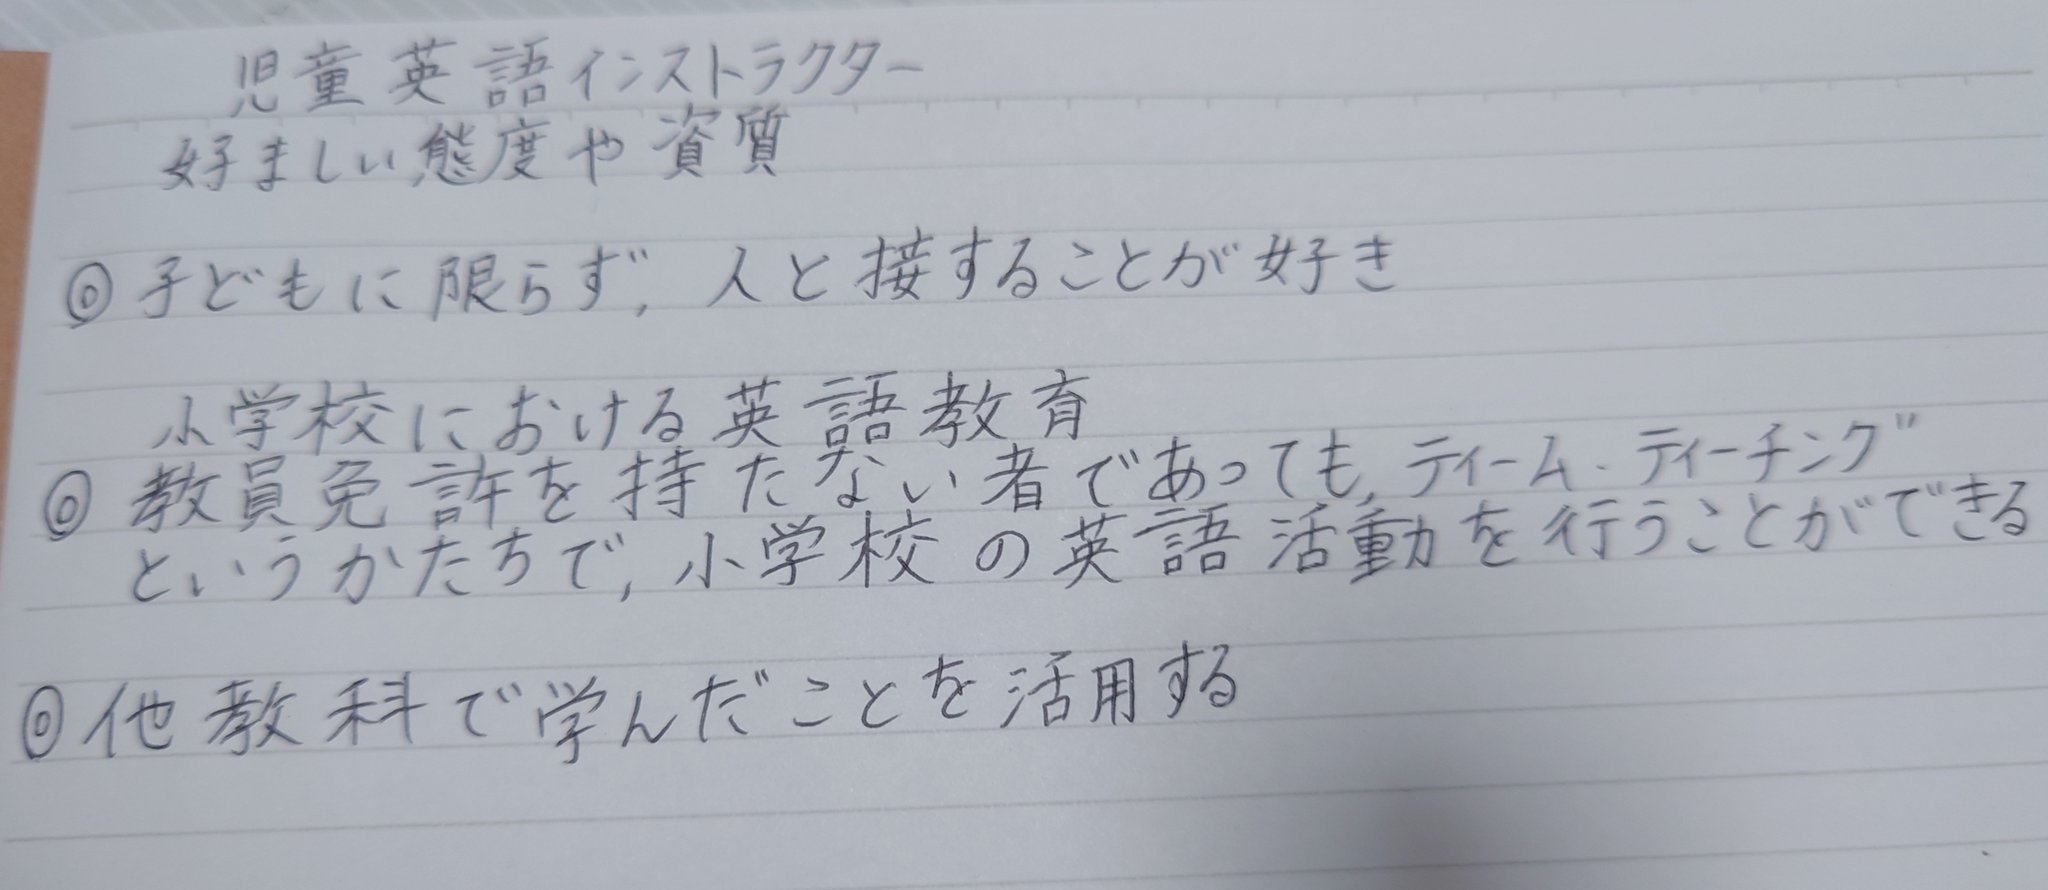 児童英語インストラクター
好ましい態度や資質
◎子どもに限らず,人と接することが好き
小学校における英語教育
◎教員免許を持たない者であっても,ティーム・ティーチング
というかたちで,小学校の英語活動を行うことができる
◎他教科で学んだことを活用する